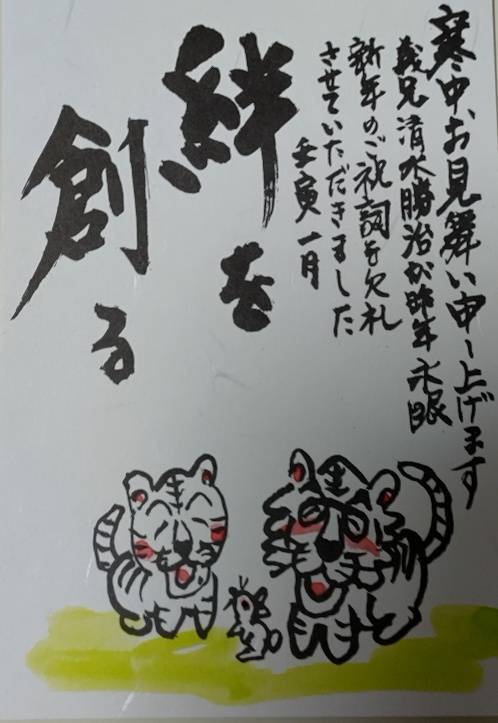 寒中お見舞い申し上げます
義兄清水勝治が昨年永眠
新年のご祝詞を欠礼
させていただきました
壬寅一月
絆を
創る